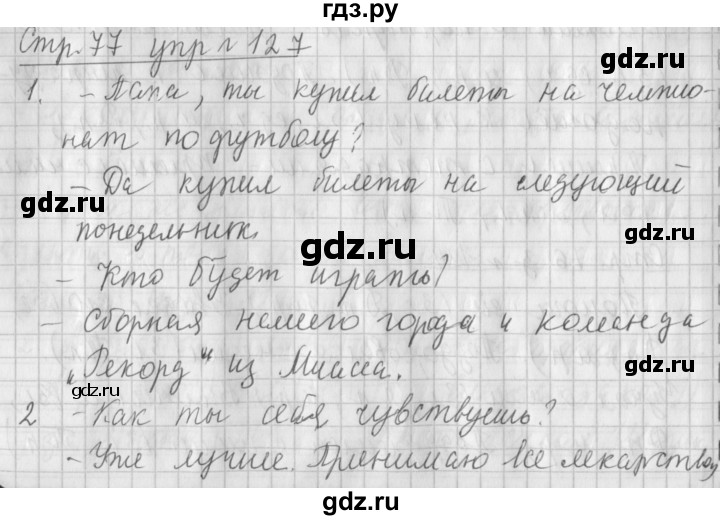 гдз.ру
Стр. 77 упр № 127
gdz.ru
1. – Папа, ты купил билеты на чемпио-
нат по футболу?
– Да купил билеты на следующий
gdz.ru
понедельник.
gdz.ru
gdz.ru
– Кто будет играть?
– Сборная нашего города и команда
„Рекорд“ из Миасса.
gdz.ru
gdz.ru
2 – Как ты себя чувствуешь?
– Уже лучше. Принимаю все лекарства,
gdz.ru
gdz.ru
gdz.ru